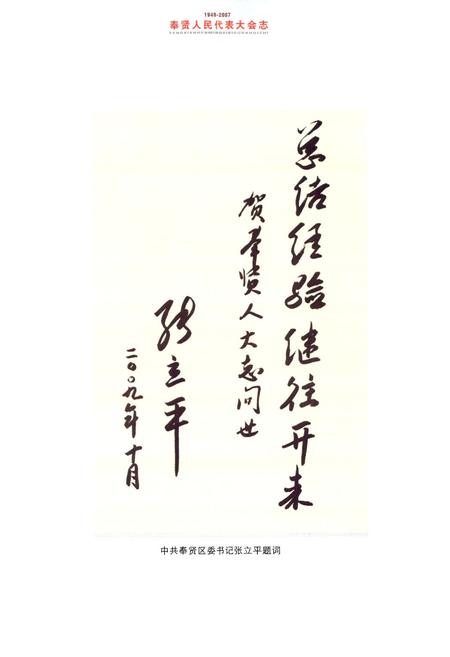 1949-2007
奉贤人民代表大会志
FENGXIANRENMINDAIBIAODAHUIZHI
总结经验继往开来
贺奉贤人大志问世
张立平
二〇〇九年十月
中共奉贤区委书记张立平题词